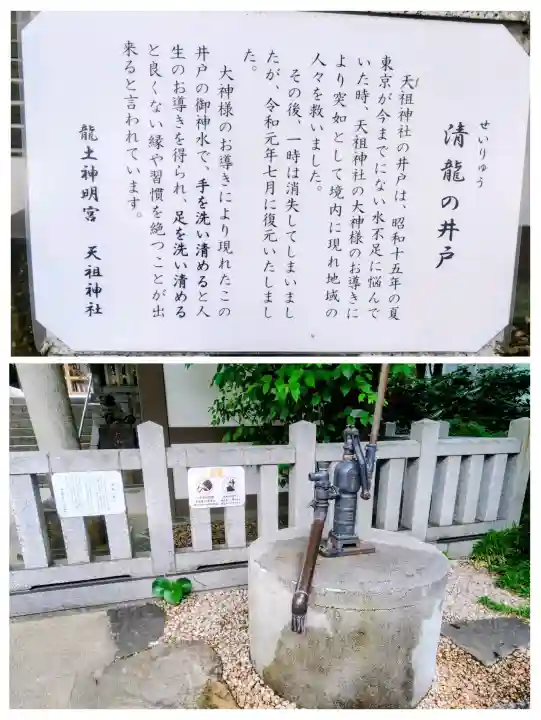 せいりゅう
清龍の井戸
天祖神社の井戸は、昭和十五年の夏
東京が今までにない水不足に悩んで
いた時、天祖神社の大神様のお導きに
より突如として境内に現れ地域の
人々を救いました。
その後、一時は消失してしまいまし
たが、令和元年七月に復元いたしまし
た。
大神様のお導きにより現れたこの
井戸の御神水で、手を洗い清めると人
生のお導きを得られ、足を洗い清める
と良くない縁や習慣を絶つことが出
来ると言われています。
龍土神明宮 天祖神社